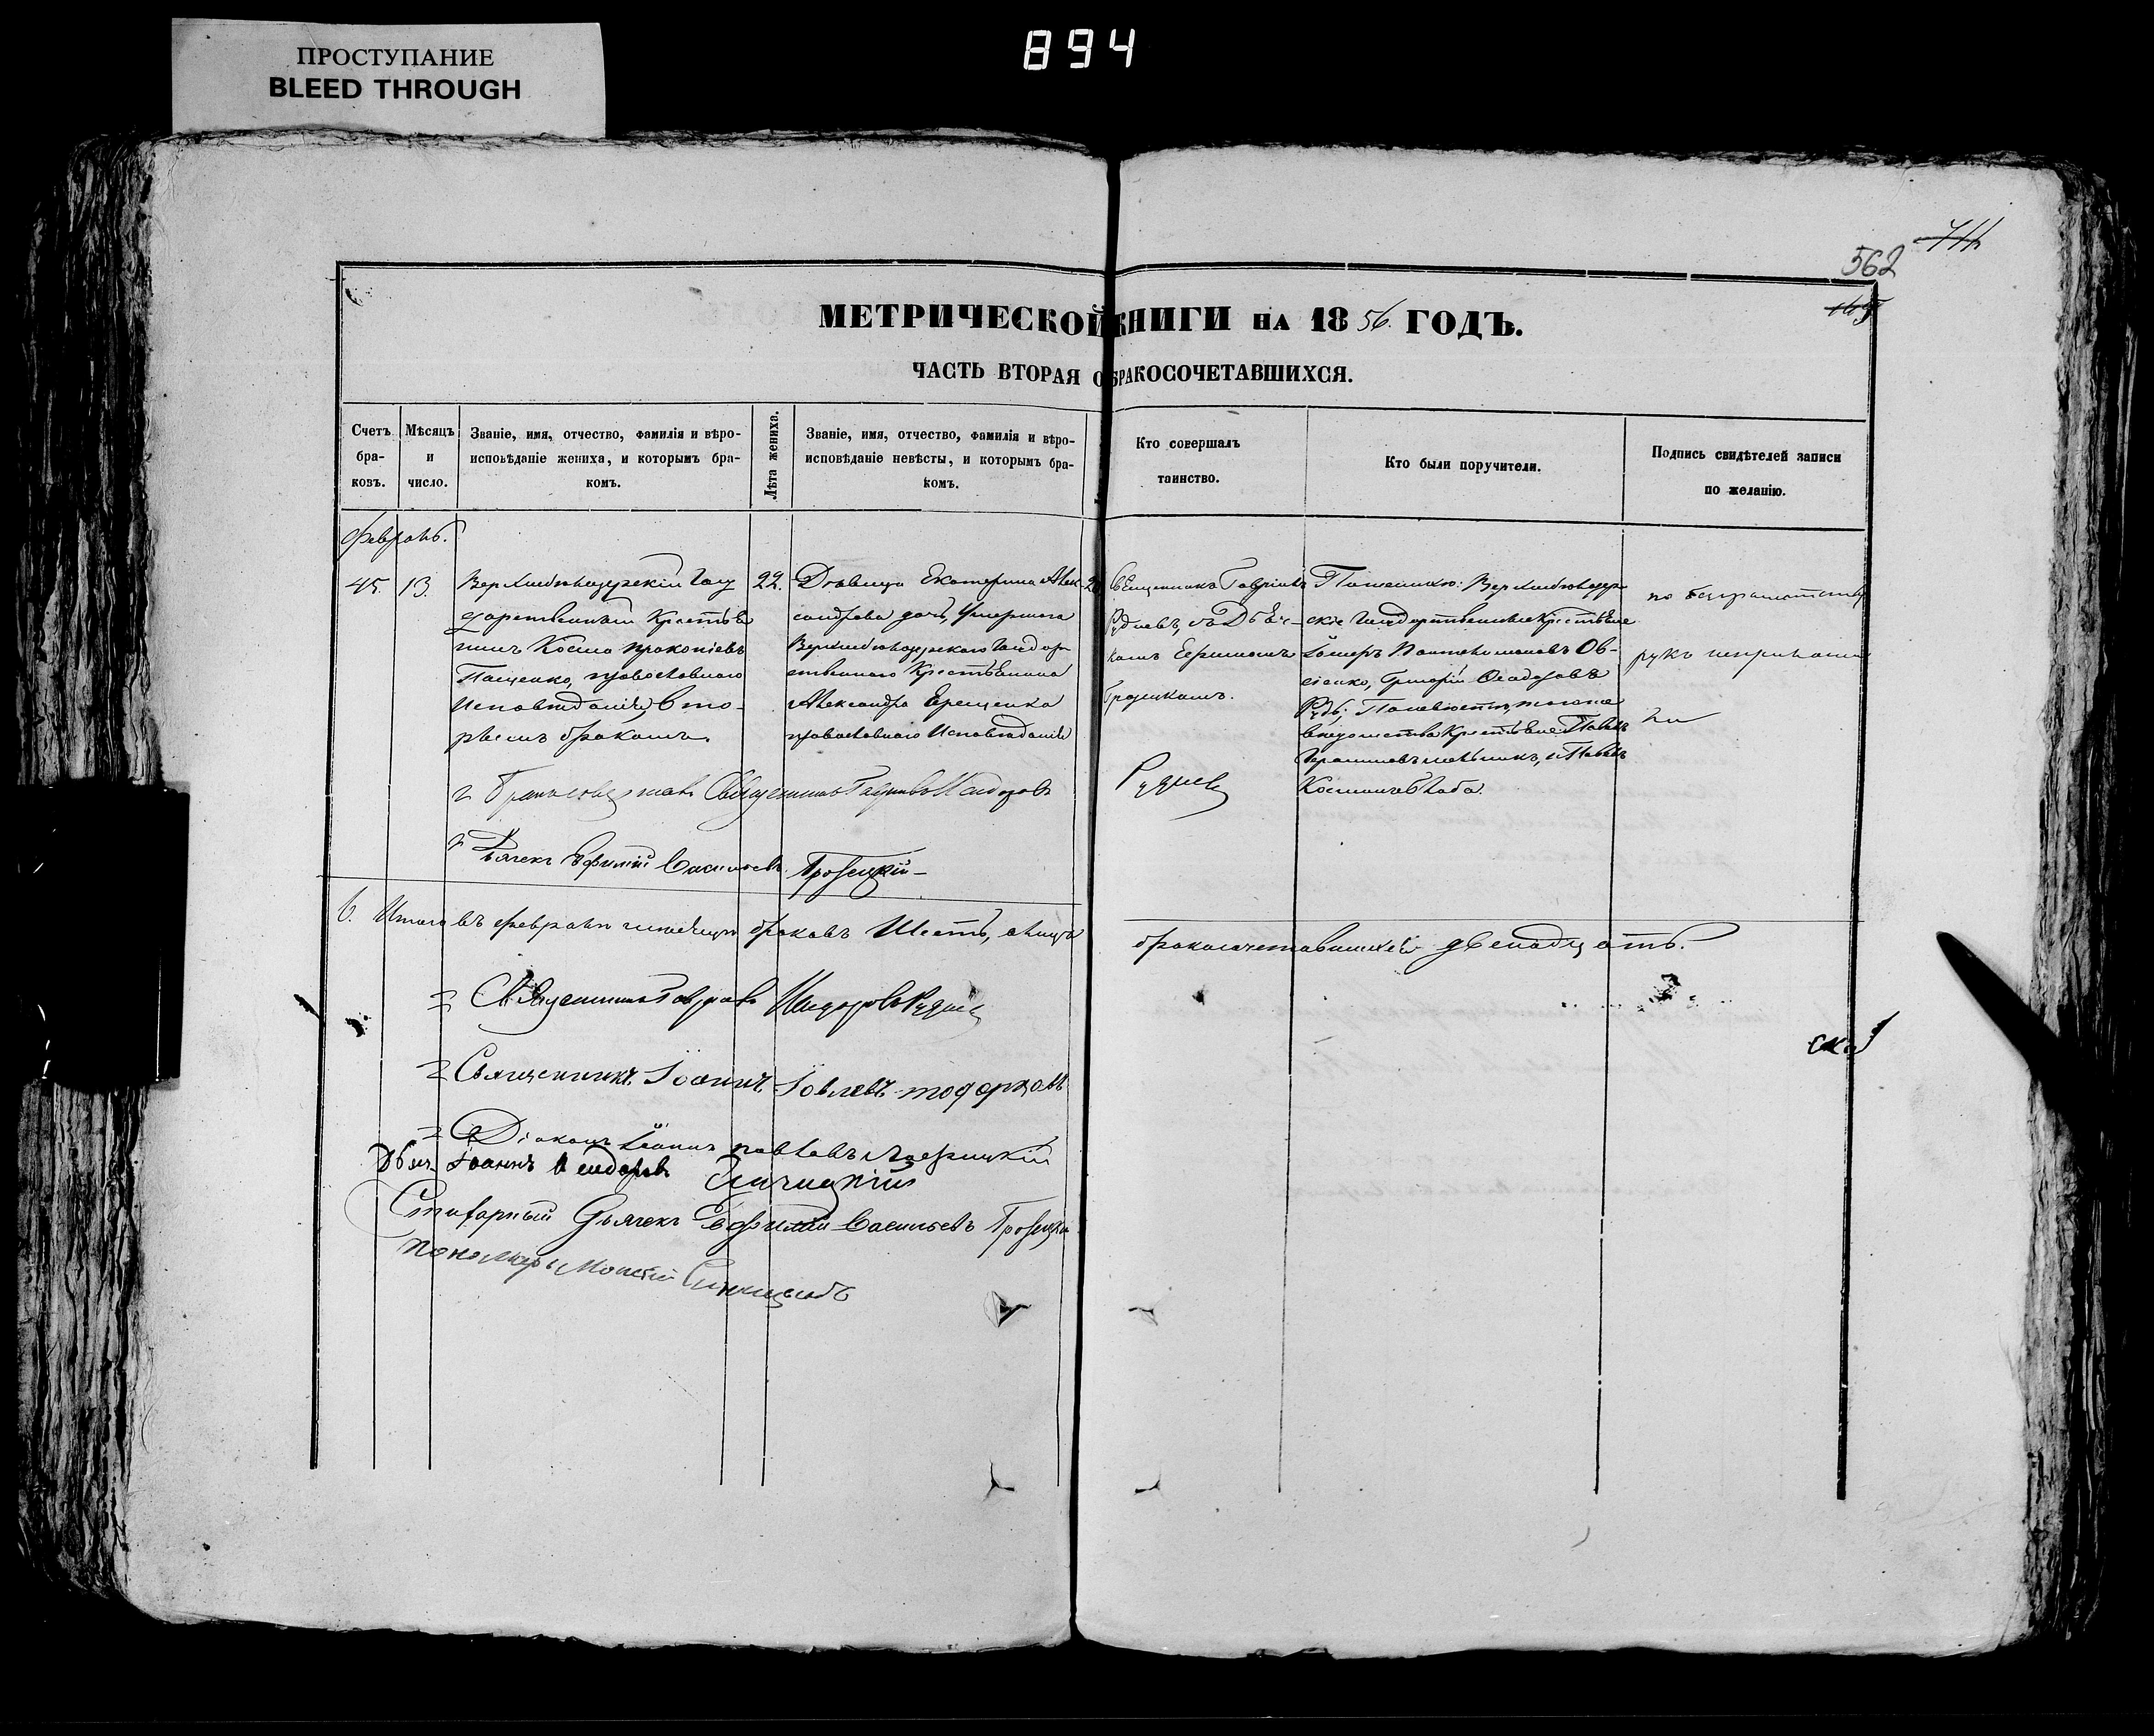 ПРОСТУПАНИЕ
BLEED THROUGH
894
562
МЕТРИЧЕСКОЙ КНИГИ НА 1856. ГОДЪ.
ЧАСТЬ ВТОРАЯ О БРАКОСОЧЕТАВШИХСЯ.
Счетъ бра-
ковъ.
Мѣсяцъ
и
число.
Званіе, имя, отчество, фамилія и вѣро-
исповѣданіе жениха, и которымъ бра-
комъ.
Лѣта жениха.
Званіе, имя, отчество, фамилія и вѣро-
исповѣданіе невѣсты, и которымъ бра-
комъ.
Кто совершалъ
таинство.
Кто были поручители.
Подпись свидѣтелей записи
по желанію.
Февраль.
45. 13.
Госу
дарственный Крестья
нинъ Косма Прокопіевъ
Пащенко, православнаго
Исповѣданія, вто-
рымъ бракомъ.
22.
Дѣвица Екатерина Алек
сандрова дочь, умершаго
Государ
ственнаго Крестьянина
Александра Ерещенка
православнаго Исповѣданія
Священникъ Гавріилъ
Рудневъ, съ Дьяч-
комъ Ефиміемъ
Грозецкимъ.
Руднев
По женихѣ:
скіе Государственные Крестьяне
Ов-
сіенко, Григорій Ѳеодоровъ
Рудь; По невѣстѣ, тогоже
вѣдомства Крестьяне Павелъ
и Павелъ
Косминъ
по безграмотству
рукъ неприложи
ли
Священникъ Гавріилъ Исидоровъ
Дьячекъ Ефимій Васильевъ Грозецкій
6. Итого въ Февралѣ мѣсяцѣ браковъ Шесть, а лицъ
бракосочетавшихся двенадцать.
Священникъ Гавріилъ Исидоровъ Руднев
Священникъ Іоаннъ Іовлевъ
Діаконъ Іоаннъ Павловъ
Дьяч. Іоаннъ Исидоровъ
Стихарный Дьячекъ Ефимій Васильевъ Грозецкій
пономарь